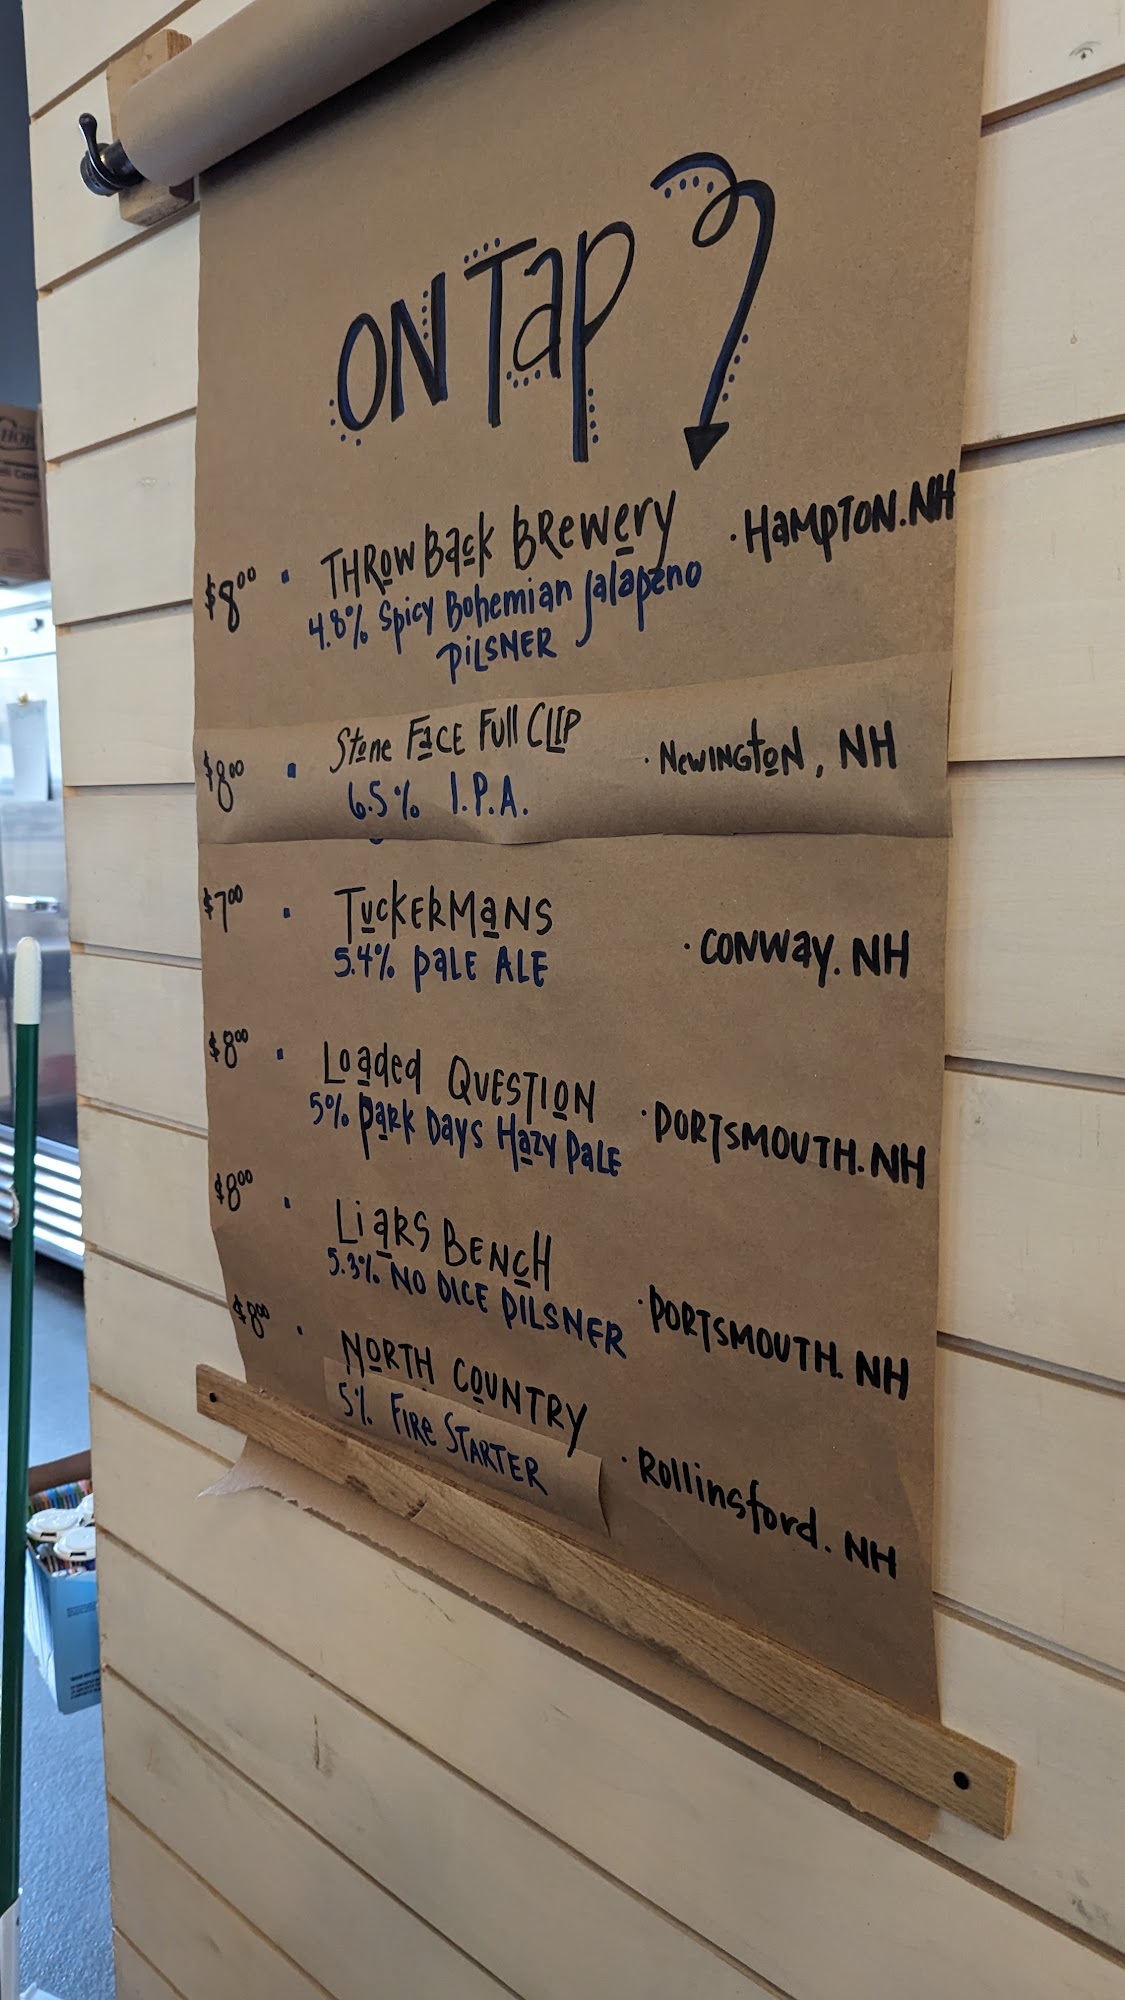 ON TaP
$8.00 · THROWBack BRewery · HaMpTON. NH
4.8% Spicy Bohemian Jalapeno
PiLSNER
$8.00 · Stone FaCE Full CLIP · NewINGtON, NH
6.5% I.P.A.
$7.00 · TuckERMaNS · CONWay. NH
5.4% PALE ALE
$8.00 · Loaded QUESTION · PORTSMOUTH. NH
5% Park Days Hazy PaLE
$8.00 · LiaRS BENcH · PORTSMOUTH. NH
5.3% NO DICE PILSNER
$8.00 · NORTH COUNTRY · Rollinsford. NH
5% FIRe STARTER